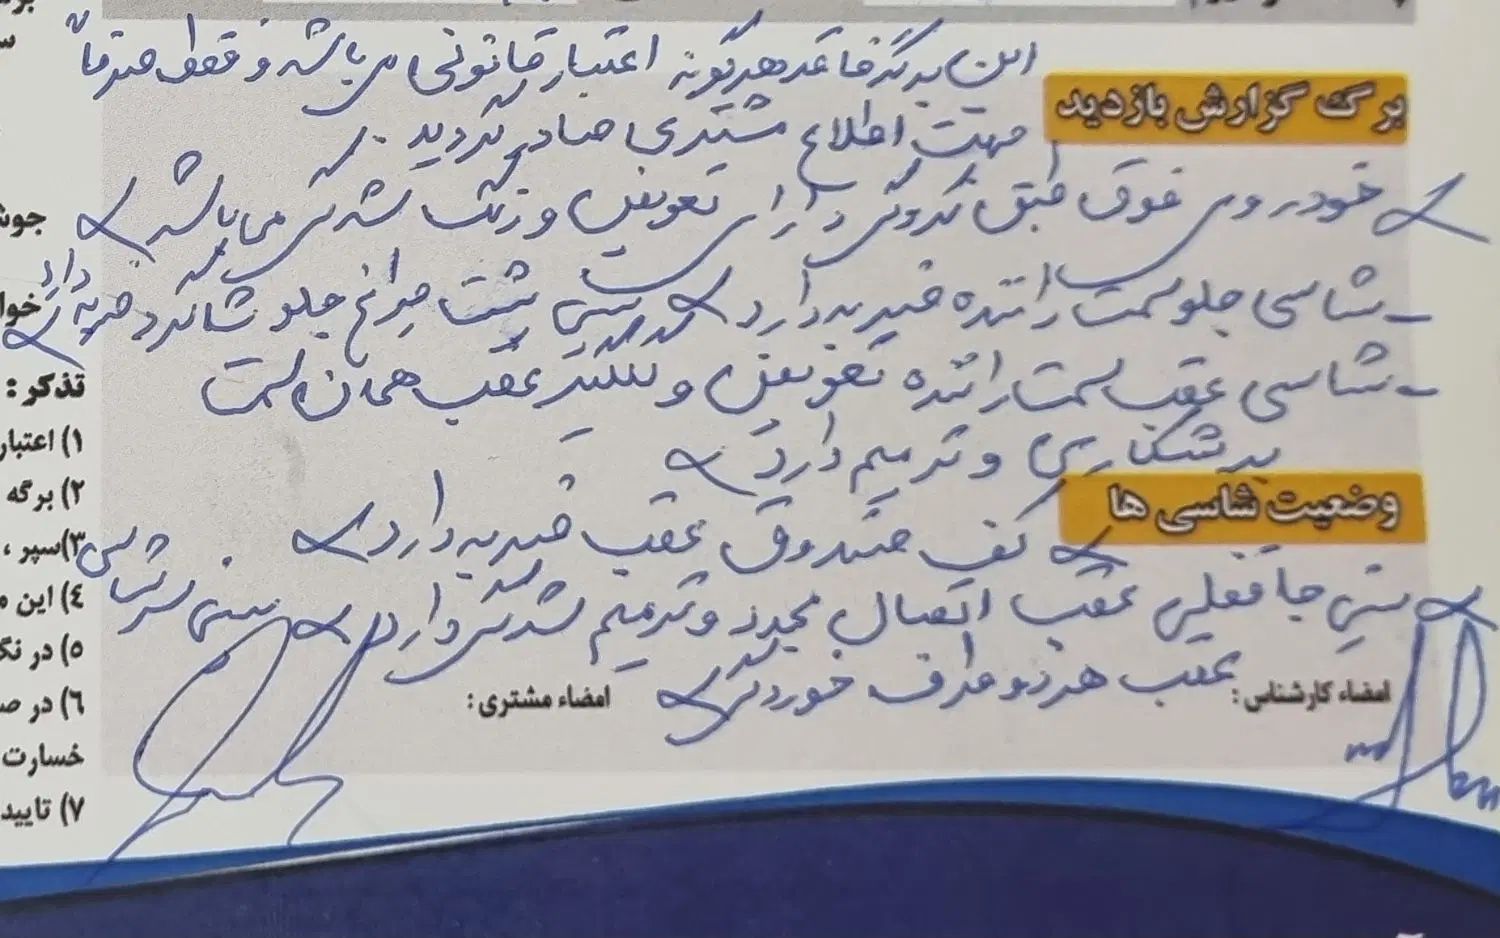 این برگه فاقد هرگونه اعتبار قانونی می باشد و فقط صرفاً
برگ گزارش بازدید
جهت اطلاع مشتری صادر گردید.
خودروی فوق طبق کروکی دارای تعویض و رنگ شدگی می باشد
جوش
ـ شاسی جلو سمت راننده ضربه دارد سینی پشت چراغ جلو شاگرد ضربه دارد
خوا
ـ شاسی عقب سمت راننده تعویض و گلگیر عقب همان سمت
برشکاری و ترمیم دارد
تذکر :
۱) اعتبار
۲) برگه
وضعیت شاسی ها
کف صندوق عقب ضربه دارد
۳) سپر ،
سینی جا قفلی عقب اتصال مجدد و ترمیم شدگی دارد سینی سرشاسی
۴) این
عقب هر دو طرف خوردگی
۵) در
امضاء کارشناس :
امضاء مشتری :
۶) در
خسارت
۷) تایید